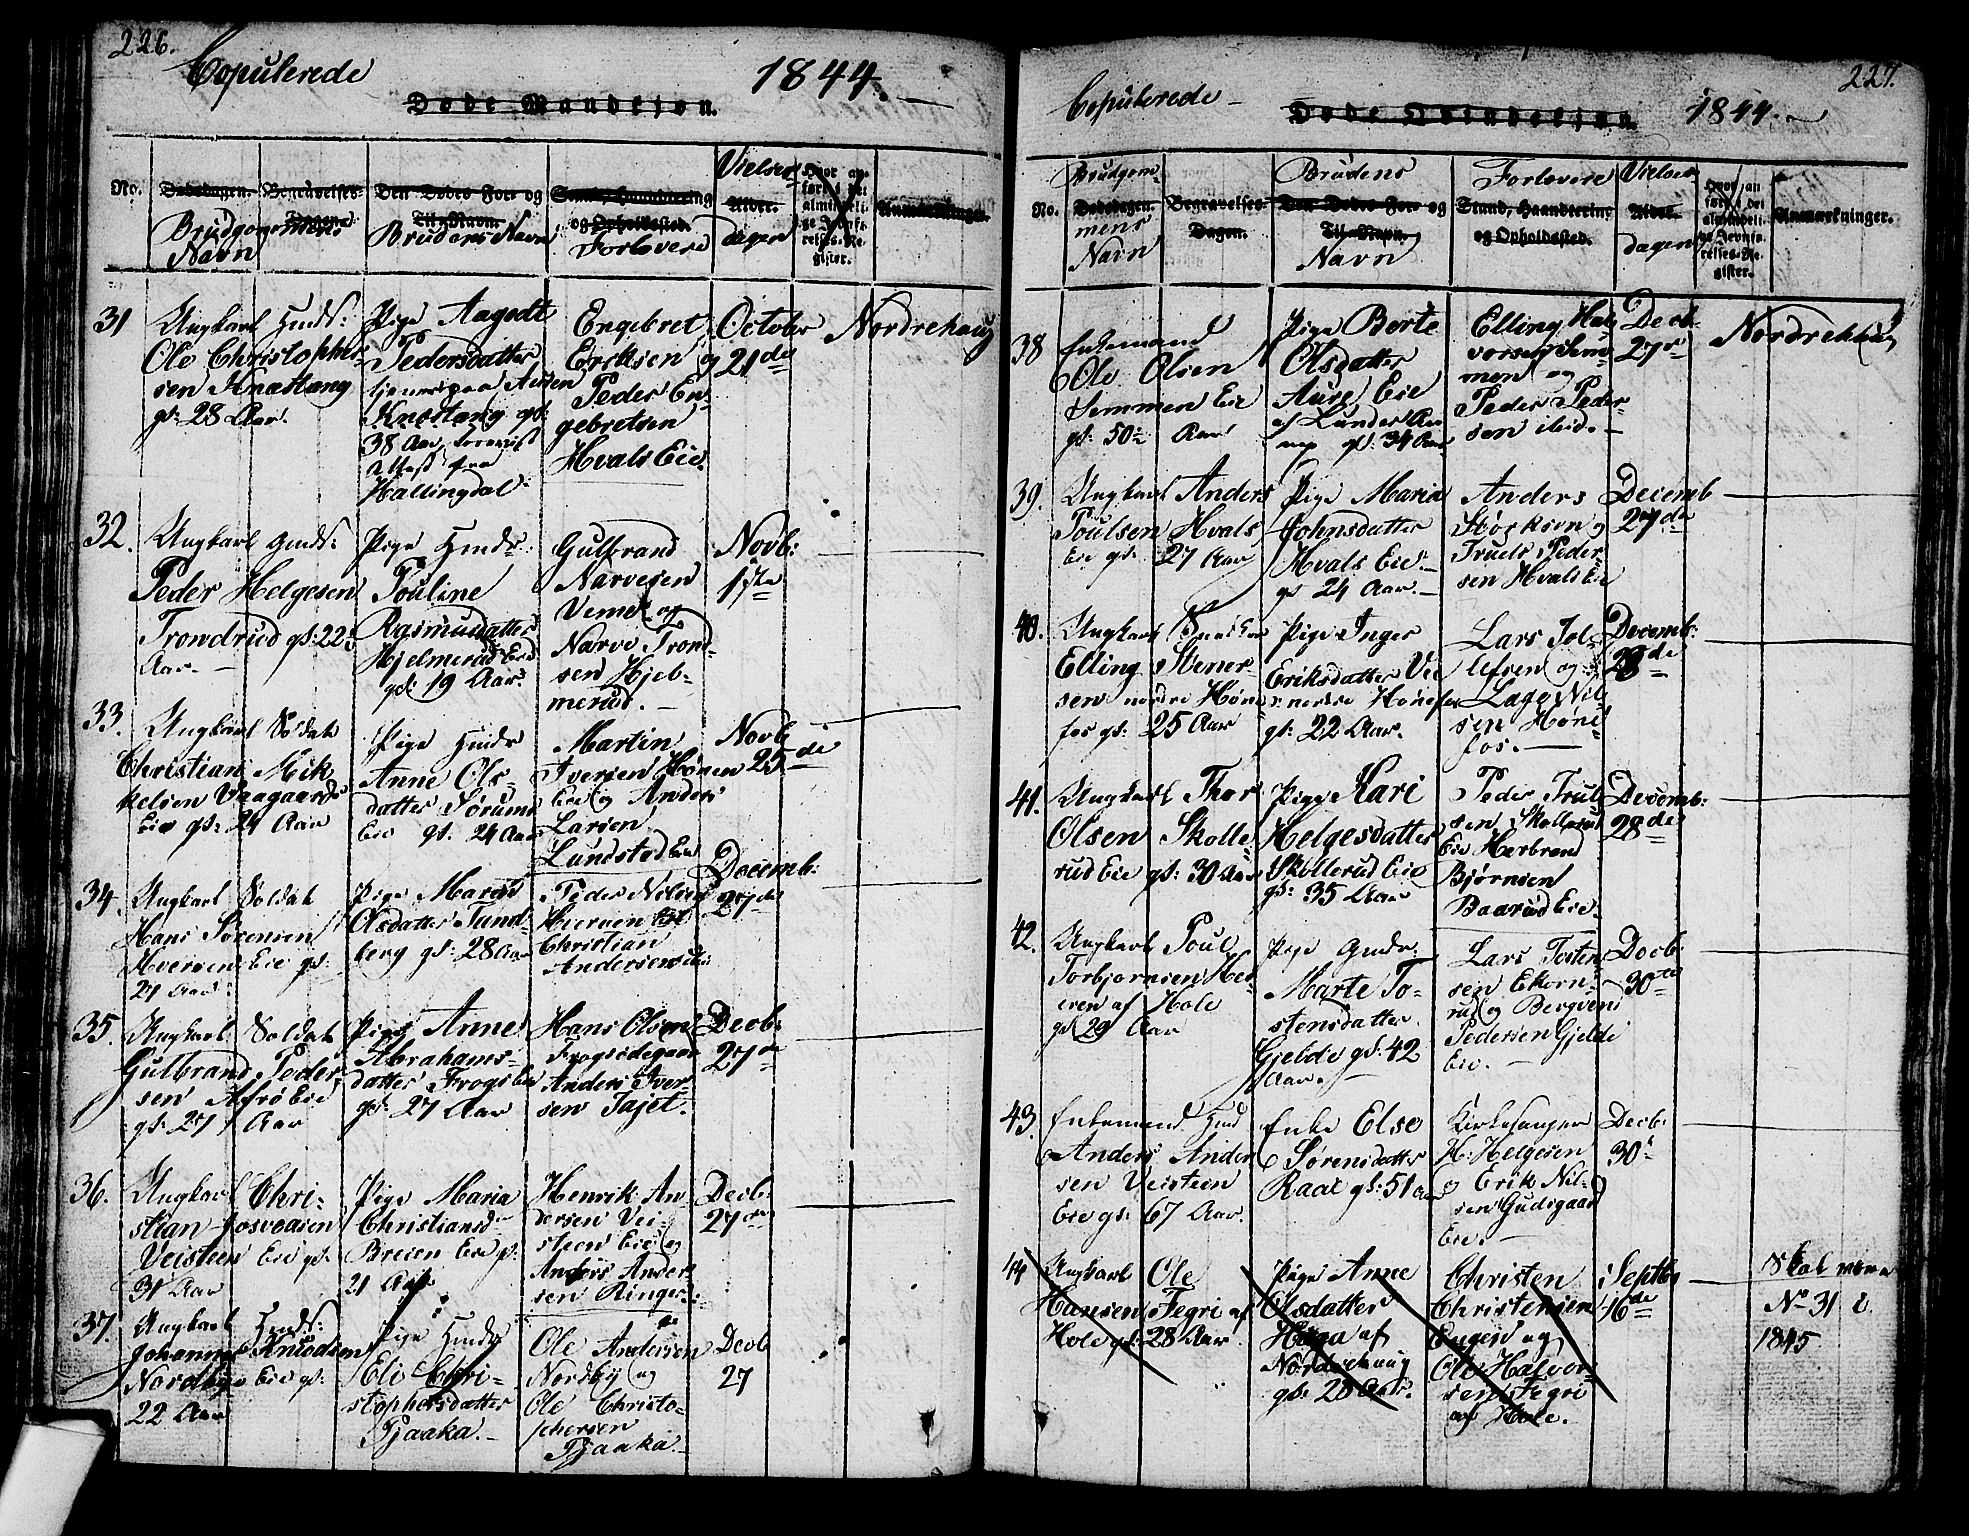 226.
Copulerede 1844.
Døde Mandkjøn.
No.
Dødsdagen.
Brudgommens
Navn
Begravelses-
Dagen.
Den Dødes For- og
Til-Navn.
Brudens Navn
Stand, Haandtering
og Opholdssted.
Forlovere
Vielses
Alder.
dagen
Hvor an-
ført i det
almindeli-
ge Jevnfø-
relses-Re-
gister.
Anmærkninger.
31
Ungkarl Gmds:
Ole Christopher-
sen Knæstang
gl: 28 Aar.
Pige Aagodt
Pedersdatter
Knæstang gl:
38 Aar
Attest fra
Hallingdal.
Engebret
Ericksen og
Peder En-
gebretsen
Hvals Eie.
October
21de
Nordrehaug
32.
Ungkarl Gmds:
Peder Helgesen
Trondrud gl: 22
Aar.
Pige Gmds:
Pouline
Rasmusdatter
Hjelmerud Eie
gl: 19 Aar.
Gulbrand
Narvesen
Veme og
Narve Trond-
sen Hjel-
merud.
Novb:
1ste
33.
Ungkarl Soldat
Christian Mik-
kelsen Vaagaards
Eie gl: 24 Aar
Pige Gmds
Anne Ols-
datter Sørums
Eie gl. 24 Aar
Martin
Iversen Hønen
Eie og Anders
Larsen
Lundsted Eie
Novb
25de
34.
Ungkarl Soldat
Hans Sørensen
Hverven Eie gl:
27 Aar.
Pige Maren
Olsdatter Tand-
berg gl: 28 Aar
Peder Nilsen
Hverven Eie
Christian
Andersen
Decemb:
27de
35.
Ungkarl Soldat
Gulbrand Peder-
sen Eie
gl: 27 Aar
Pige Anne
Abrahams-
datter Frogs Eie
gl. 27 Aar
Hans Olsen
Frogsødegaar
Anders Iver-
sen Tajet.
Decb:
27de
36.
Ungkarl Chri-
stian Josvasen
Veisteen Eie gl:
31 Aar
Pige Maria
Christiansd
Breien Eie gl:
21 Aar
Henrik An-
dersen Vei-
steen Eie og
Anders Ander-
sen Ringer
Decb:
27de
37.
Ungkarl Gmds:
Johannes Knudsen
Nordbye Eie gl:
22 Aar
Pige Gmds
Eli Chri-
stophersdatter
Pjaaka.
Ole Andersen
Nordby og
Ole Christo-
phersen
Pjaaka.
Decb
27
227.
Copulerede 1844.
Døde Qvindekjøn.
No.
Brudgom-
Dødsdagen.
mens
Navn
Begravelses-
Dagen.
Brudens
Den Dødes For- og
Til-Navn.
Navn
Forlovere
Stand, Haandtering
og Opholdssted.
Vielses
Alder.
dagen
Hvor an-
ført i det
almindeli-
ge Jevnfø-
relses-Re-
gister.
Anmærkninger.
38
Enkemand
Ole Olsen
Semmen Eie
gl. 50 Aar
Pige Berte
Olsdatter
Aure Eie
gl: 34 Aar
Elling Hal-
vorsen Sem-
men og
Peder Peder-
sen ibid.
Decb
27de
Nordrehaug
39.
Ungkarl Anders
Poulsen Hvals
Eie gl: 27 Aar
Pige Maria
Johnsdatter
Hvals Eie
gl 24 Aar.
Anders
Størksen og
Truels Peder-
sen Hvals Eie
Decemb
27de
40.
Ungkarl
Elling Stener-
sen nordre Høne-
fos gl: 25 Aar
Pige Inger
Eriksdatter
nordre Hønefos
gl: 22 Aar.
Lars Tol-
lefsen og
Lage Nil-
sen Høne-
fos.
Decemb:
28de
41.
Ungkarl Thor
Olsen Skolle-
rud Eie gl: 30 Aar
Pige Kari
Helgesdatter
Skollerud Eie
gl: 35 Aar
Peder Trul-
sen Skollerud
Eie Herbrand
Bjørnsen
Baarud Eie.
Decemb:
28de
42.
Ungkarl Poul
Torbjørnsen
af Hole
gl 29 Aar
Pige Gmds
Marte To-
stensdatter
Gjelde gl: 42
Aar.
Lars Tosten-
sen Ekorn-
rud og Bergven
Pedersen Gjelde
Eie.
Decb:
30te
43.
Enkemand Gmd
Anders Ander-
sen Veisteen
Eie gl: 67 Aar.
Enke Else
Sørensdatter
Raae gl: 51 Aar
Kirkesanger
H: Helgesen
og Erik Nil-
sen Gudsgaard
Eie.
Decb:
30te
44
Ungkarl Ole
Hansen Fegri af
Hole gl: 28 Aar
Pige Anne
Olsdatter
af
Nordrehaug
gl: 28 Aar.
Christen
Christensen
og
Ole Halvor-
sen Fegri
af Hole.
Septbr
16de
Skal være
No 31 i
1845